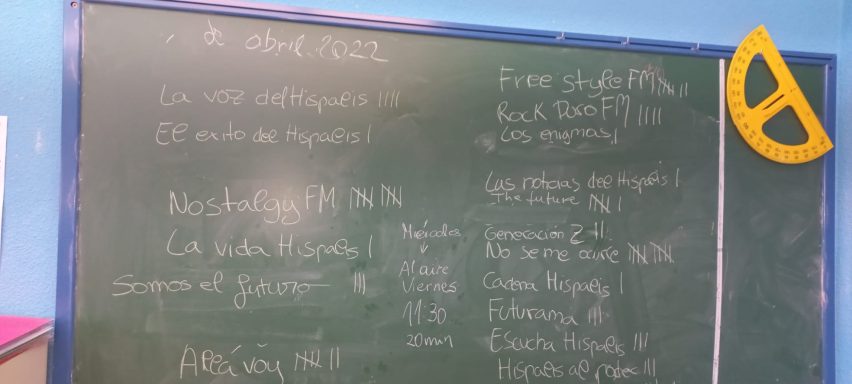 de abril 2022
La voz del Hispalis ||||
El exito del Hispalis |
Nostalgy FM 𝍸 𝍸
La vida Hispalis |
Somos el futuro |||
Allá voy 𝍸 ||
Miércoles
↓
Al aire
Viernes
11:30
20 min
Free style FM 𝍸 ||
Rock Duro FM ||||
Los enigmas |
Las noticias del Hispalis |
The future 𝍸 |
Generación Z ||
No se me ocurre 𝍸 𝍸
Cadena Hispalis |
Futurama |||
Escucha Hispalis |||
Hispalis al poder |||